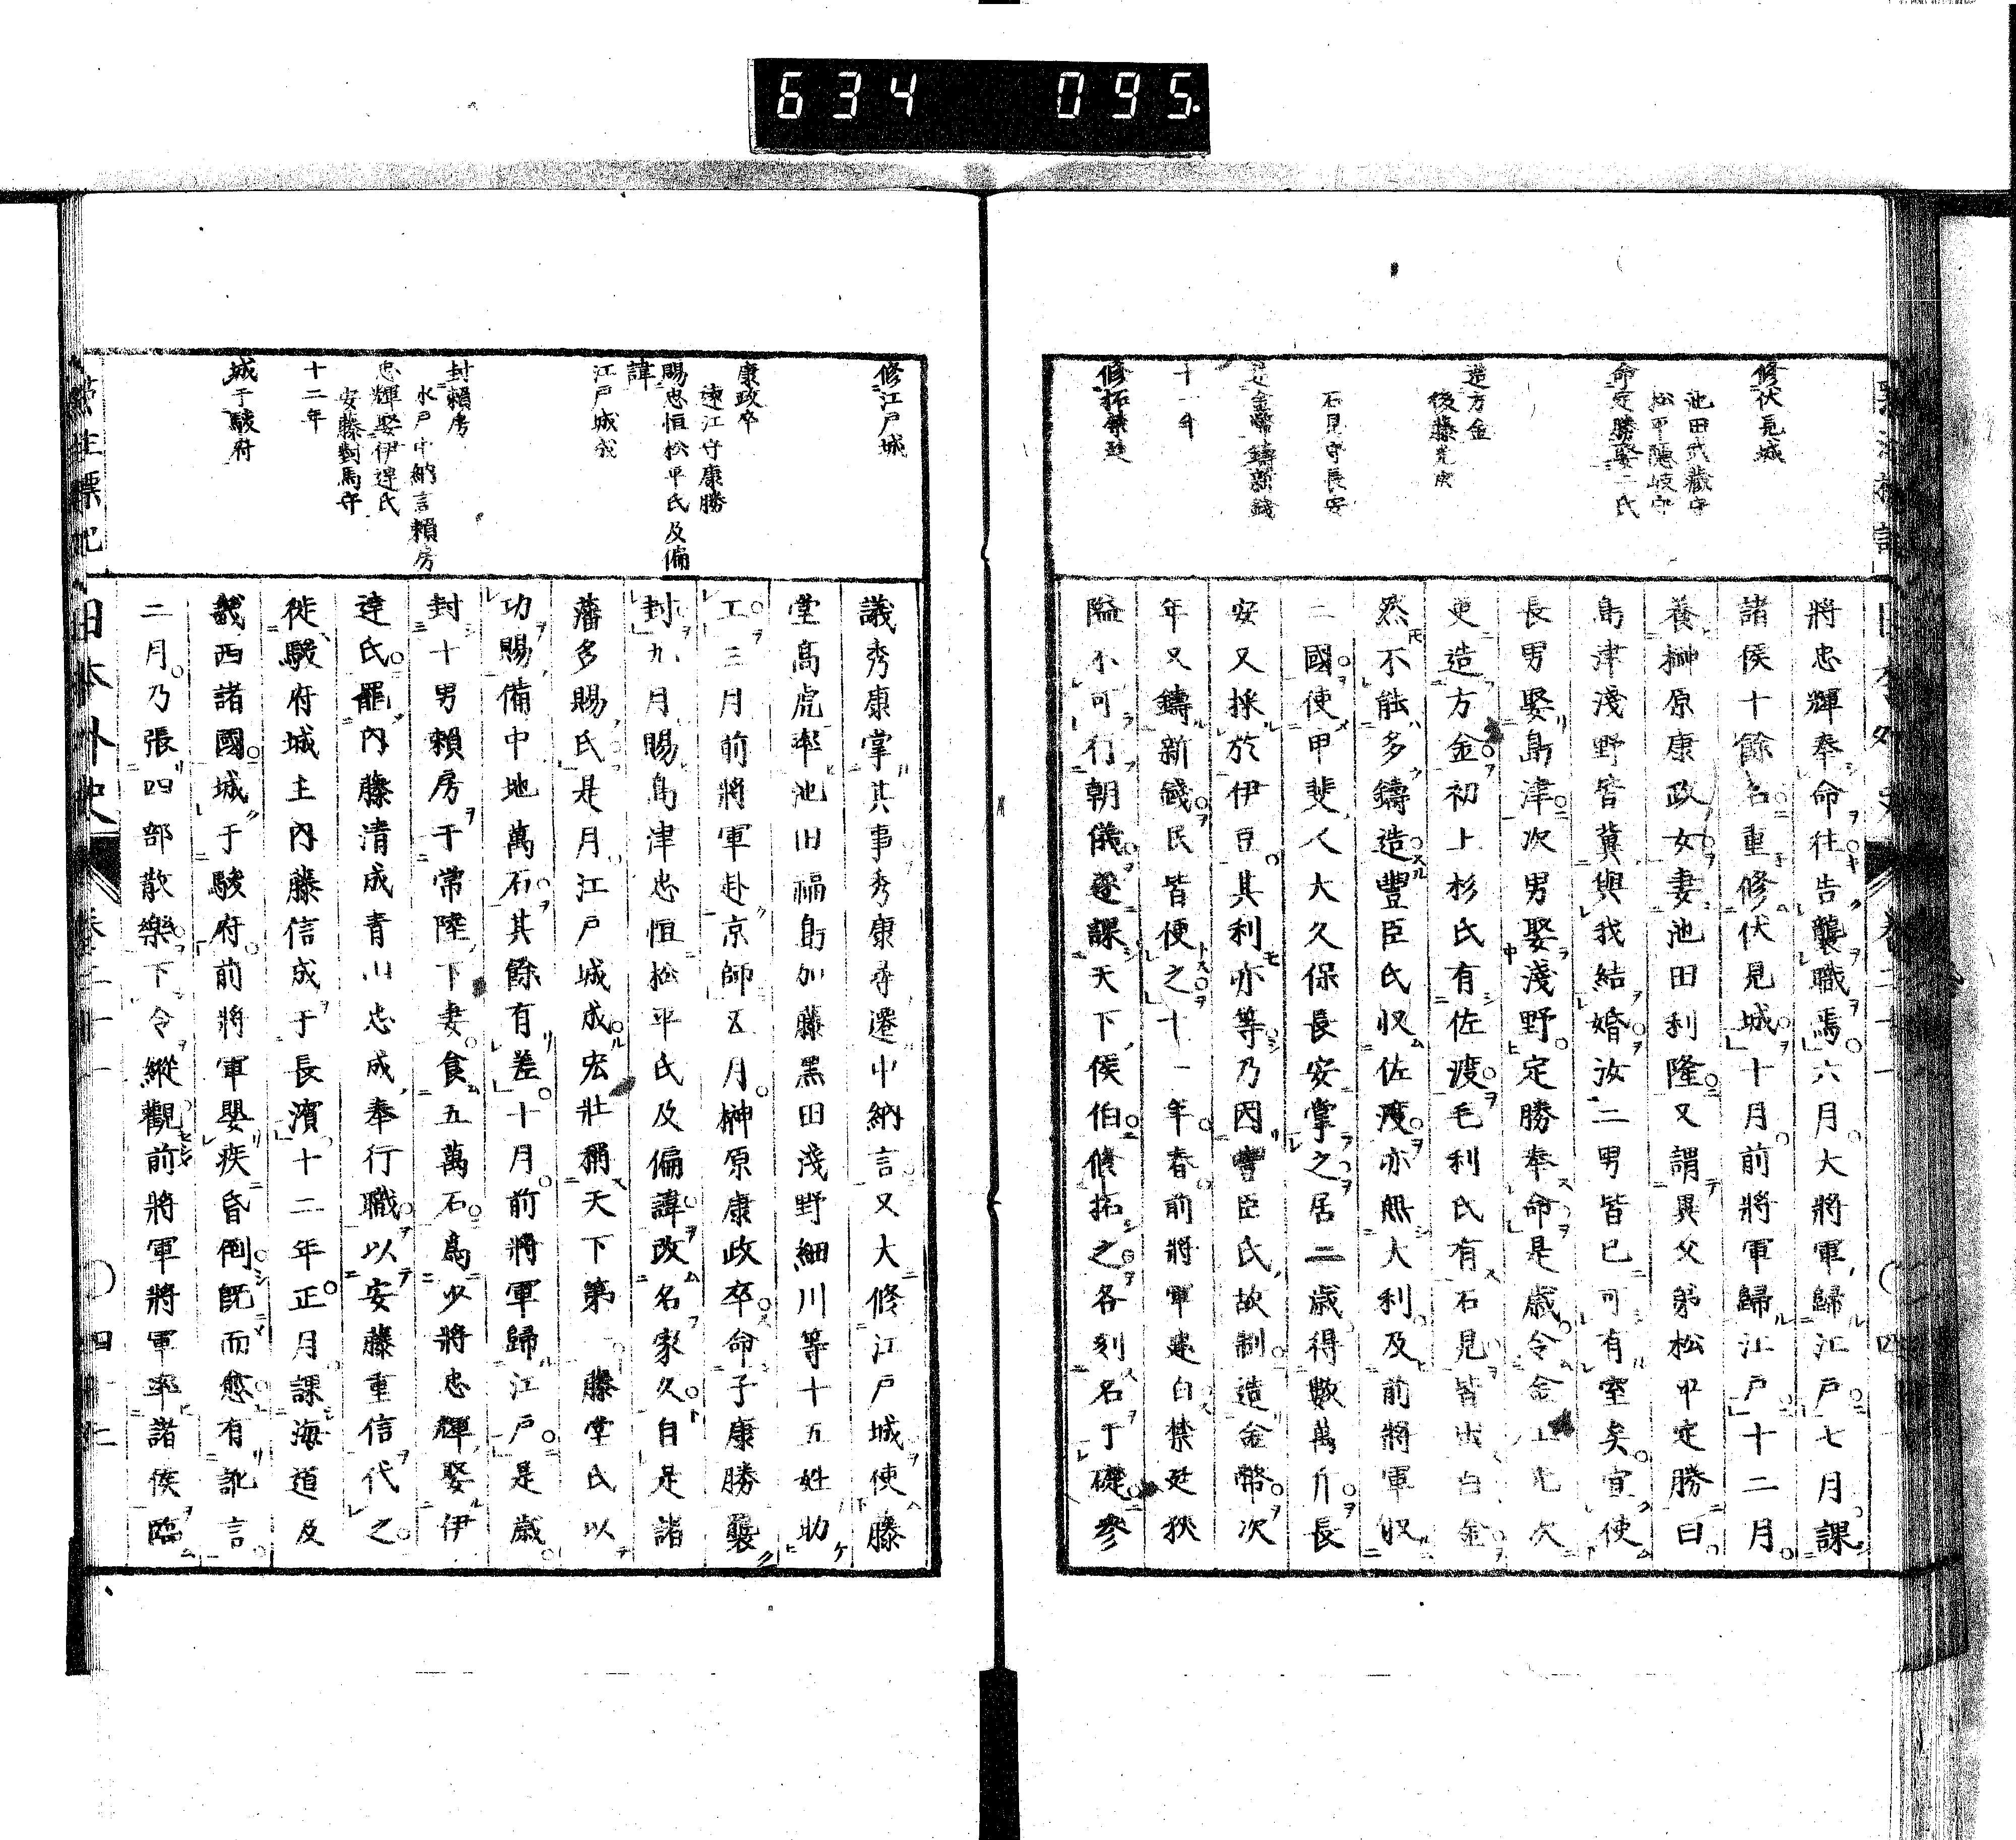 634 095.
修伏見城
池田武藏守
松平隱岐守
命定勝娶二氏
造方金
後藤光次
石見守長安
造金幣鑄新錢
十一年
修拓禁廷
將忠輝奉命往告襲職焉六月大將軍歸江戸七月課
諸侯十餘名重修伏見城十月前將軍歸江戸十二月
養榊原康政女妻池田利隆又謂異父弟松平定勝曰
島津淺野皆冀與我結婚汝二男皆已可有室矣宜使
長男娶島津次男娶淺野定勝奉命是歳令金工光次
更造方金初上杉氏有佐渡毛利氏有石見皆出白金
然不能多鑄造豐臣氏収佐渡亦無大利及前將軍収
二國使甲斐人大久保長安掌之居二歳得數萬斤長
安又採於伊豆其利亦等乃因豐臣氏故制造金幣次
年又鑄新錢民皆便之十一年春前將軍建白禁廷狹
隘不可行朝儀遂課天下侯伯修拓之各刻名于礎參
修江戸城
康政卒
遠江守康勝
賜忠恒松平氏及偏
諱
江戸城成
封賴房
水戸中納言賴房
忠輝娶伊達氏
安藤對馬守
十二年
城于駿府
議秀康掌其事秀康尋遷中納言又大修江戸城使藤
堂高虎率池田福島加藤黑田淺野細川等十五姓助
工三月前將軍赴京師五月榊原康政卒命子康勝襲
封九月賜島津忠恒松平氏及偏諱改名家久自是諸
藩多賜氏是月江戸城成宏壯稱天下第一藤堂氏以
功賜備中地萬石其餘有差十月前將軍歸江戸是歳
封十男賴房于常陸下妻食五萬石爲少將忠輝娶伊
達氏罷内藤清成青山忠成奉行職以安藤重信代之
徙駿府城主内藤信成于長濱十二年正月課海道及
畿西諸國城于駿府前將軍嬰疾昏倒既而愈有訛言
二月乃張四部散樂下令縱觀前將軍將軍率諸侯臨
標記
日本外史
卷二十一
四十二